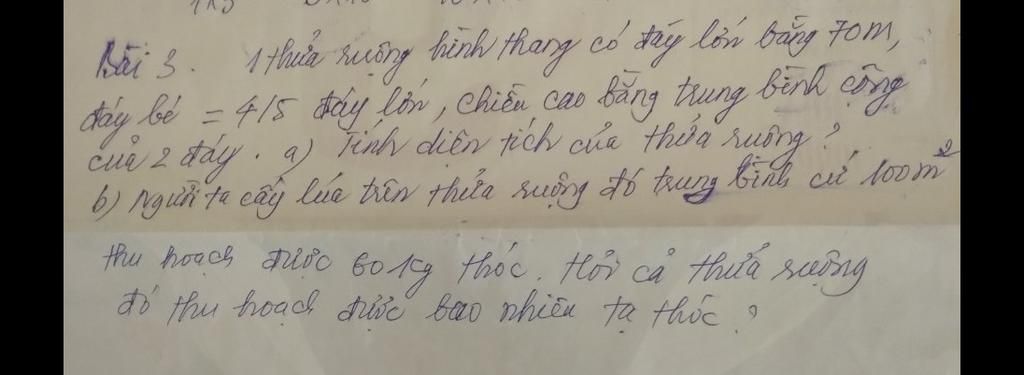 Bài 3. 1 thửa ruộng hình thang có đáy lớn bằng 70m,
đáy bé = 4/5 đáy lớn, chiều cao bằng trung bình cộng
của 2 đáy. a) Tính diện tích của thửa ruộng?
b) Người ta cấy lúa trên thửa ruộng đó trung bình cứ 100m²
thu hoạch được 60kg thóc. Hỏi cả thửa ruộng
đó thu hoạch được bao nhiêu tạ thóc?